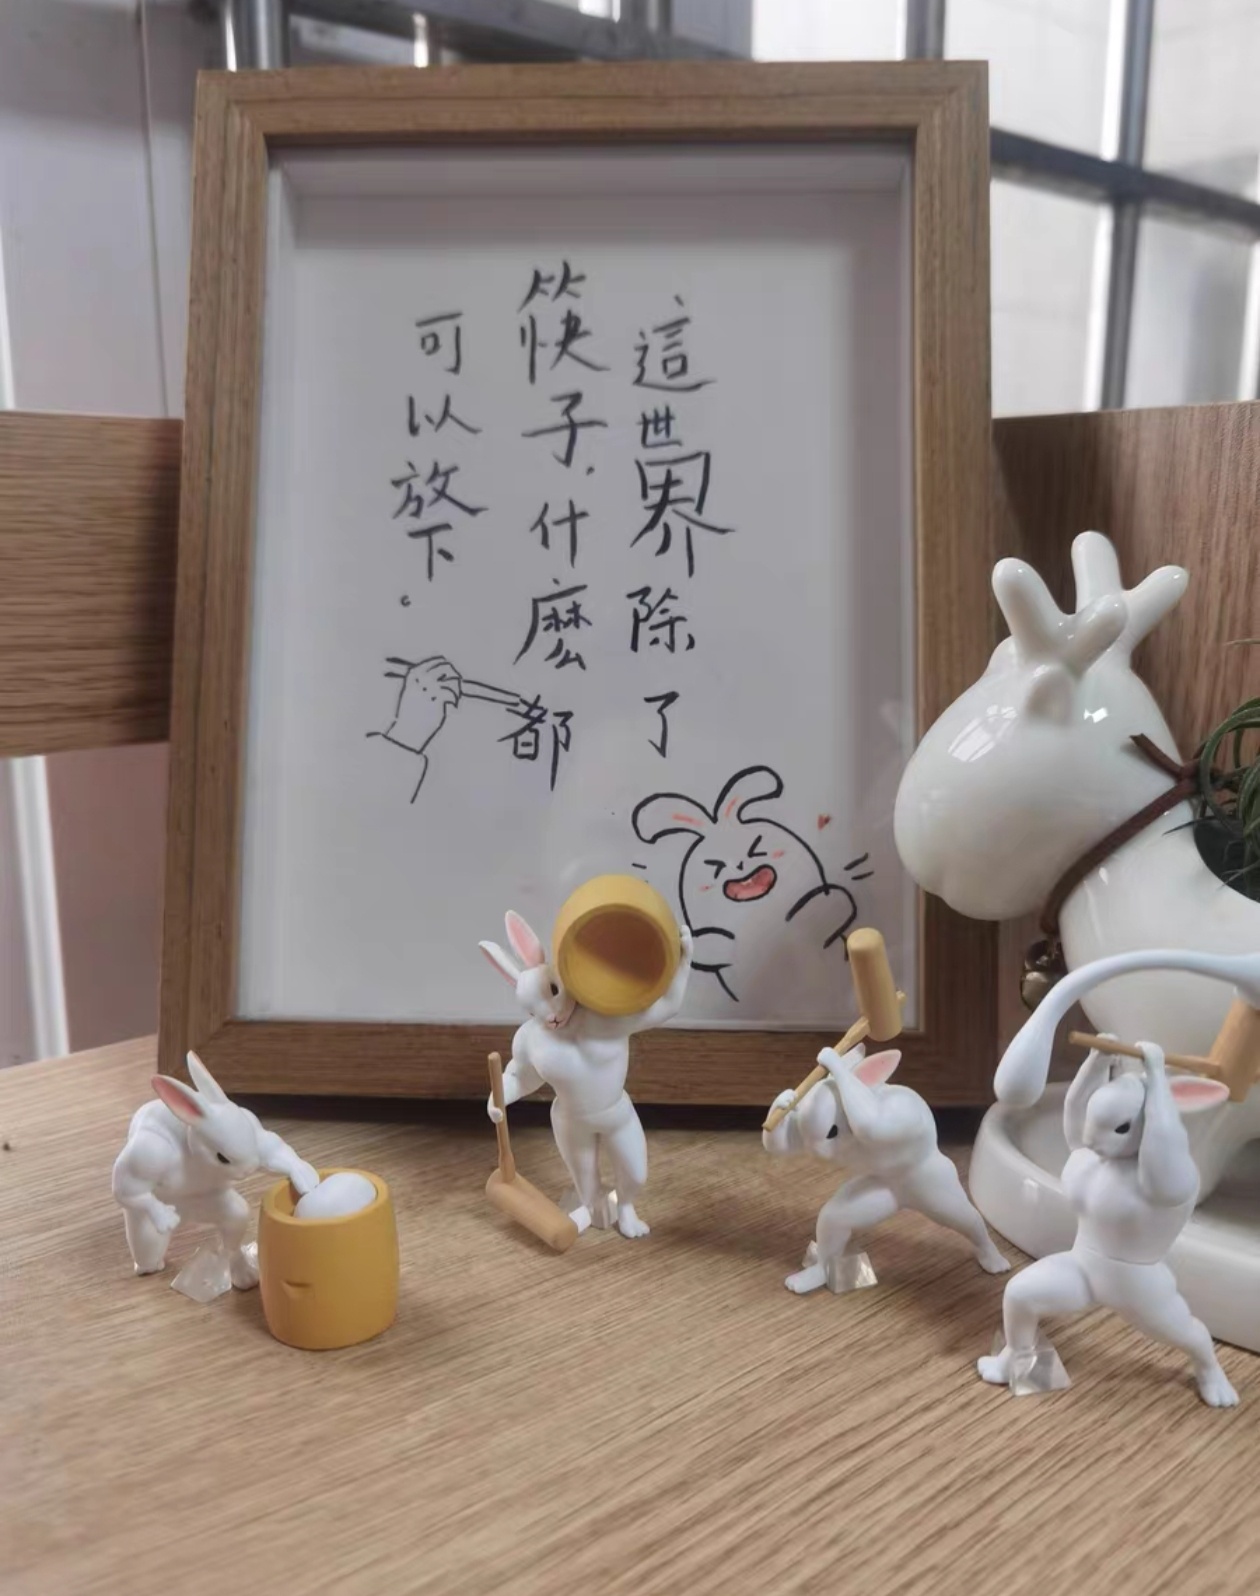 這世界除了
筷子,什麼都
可以放下。